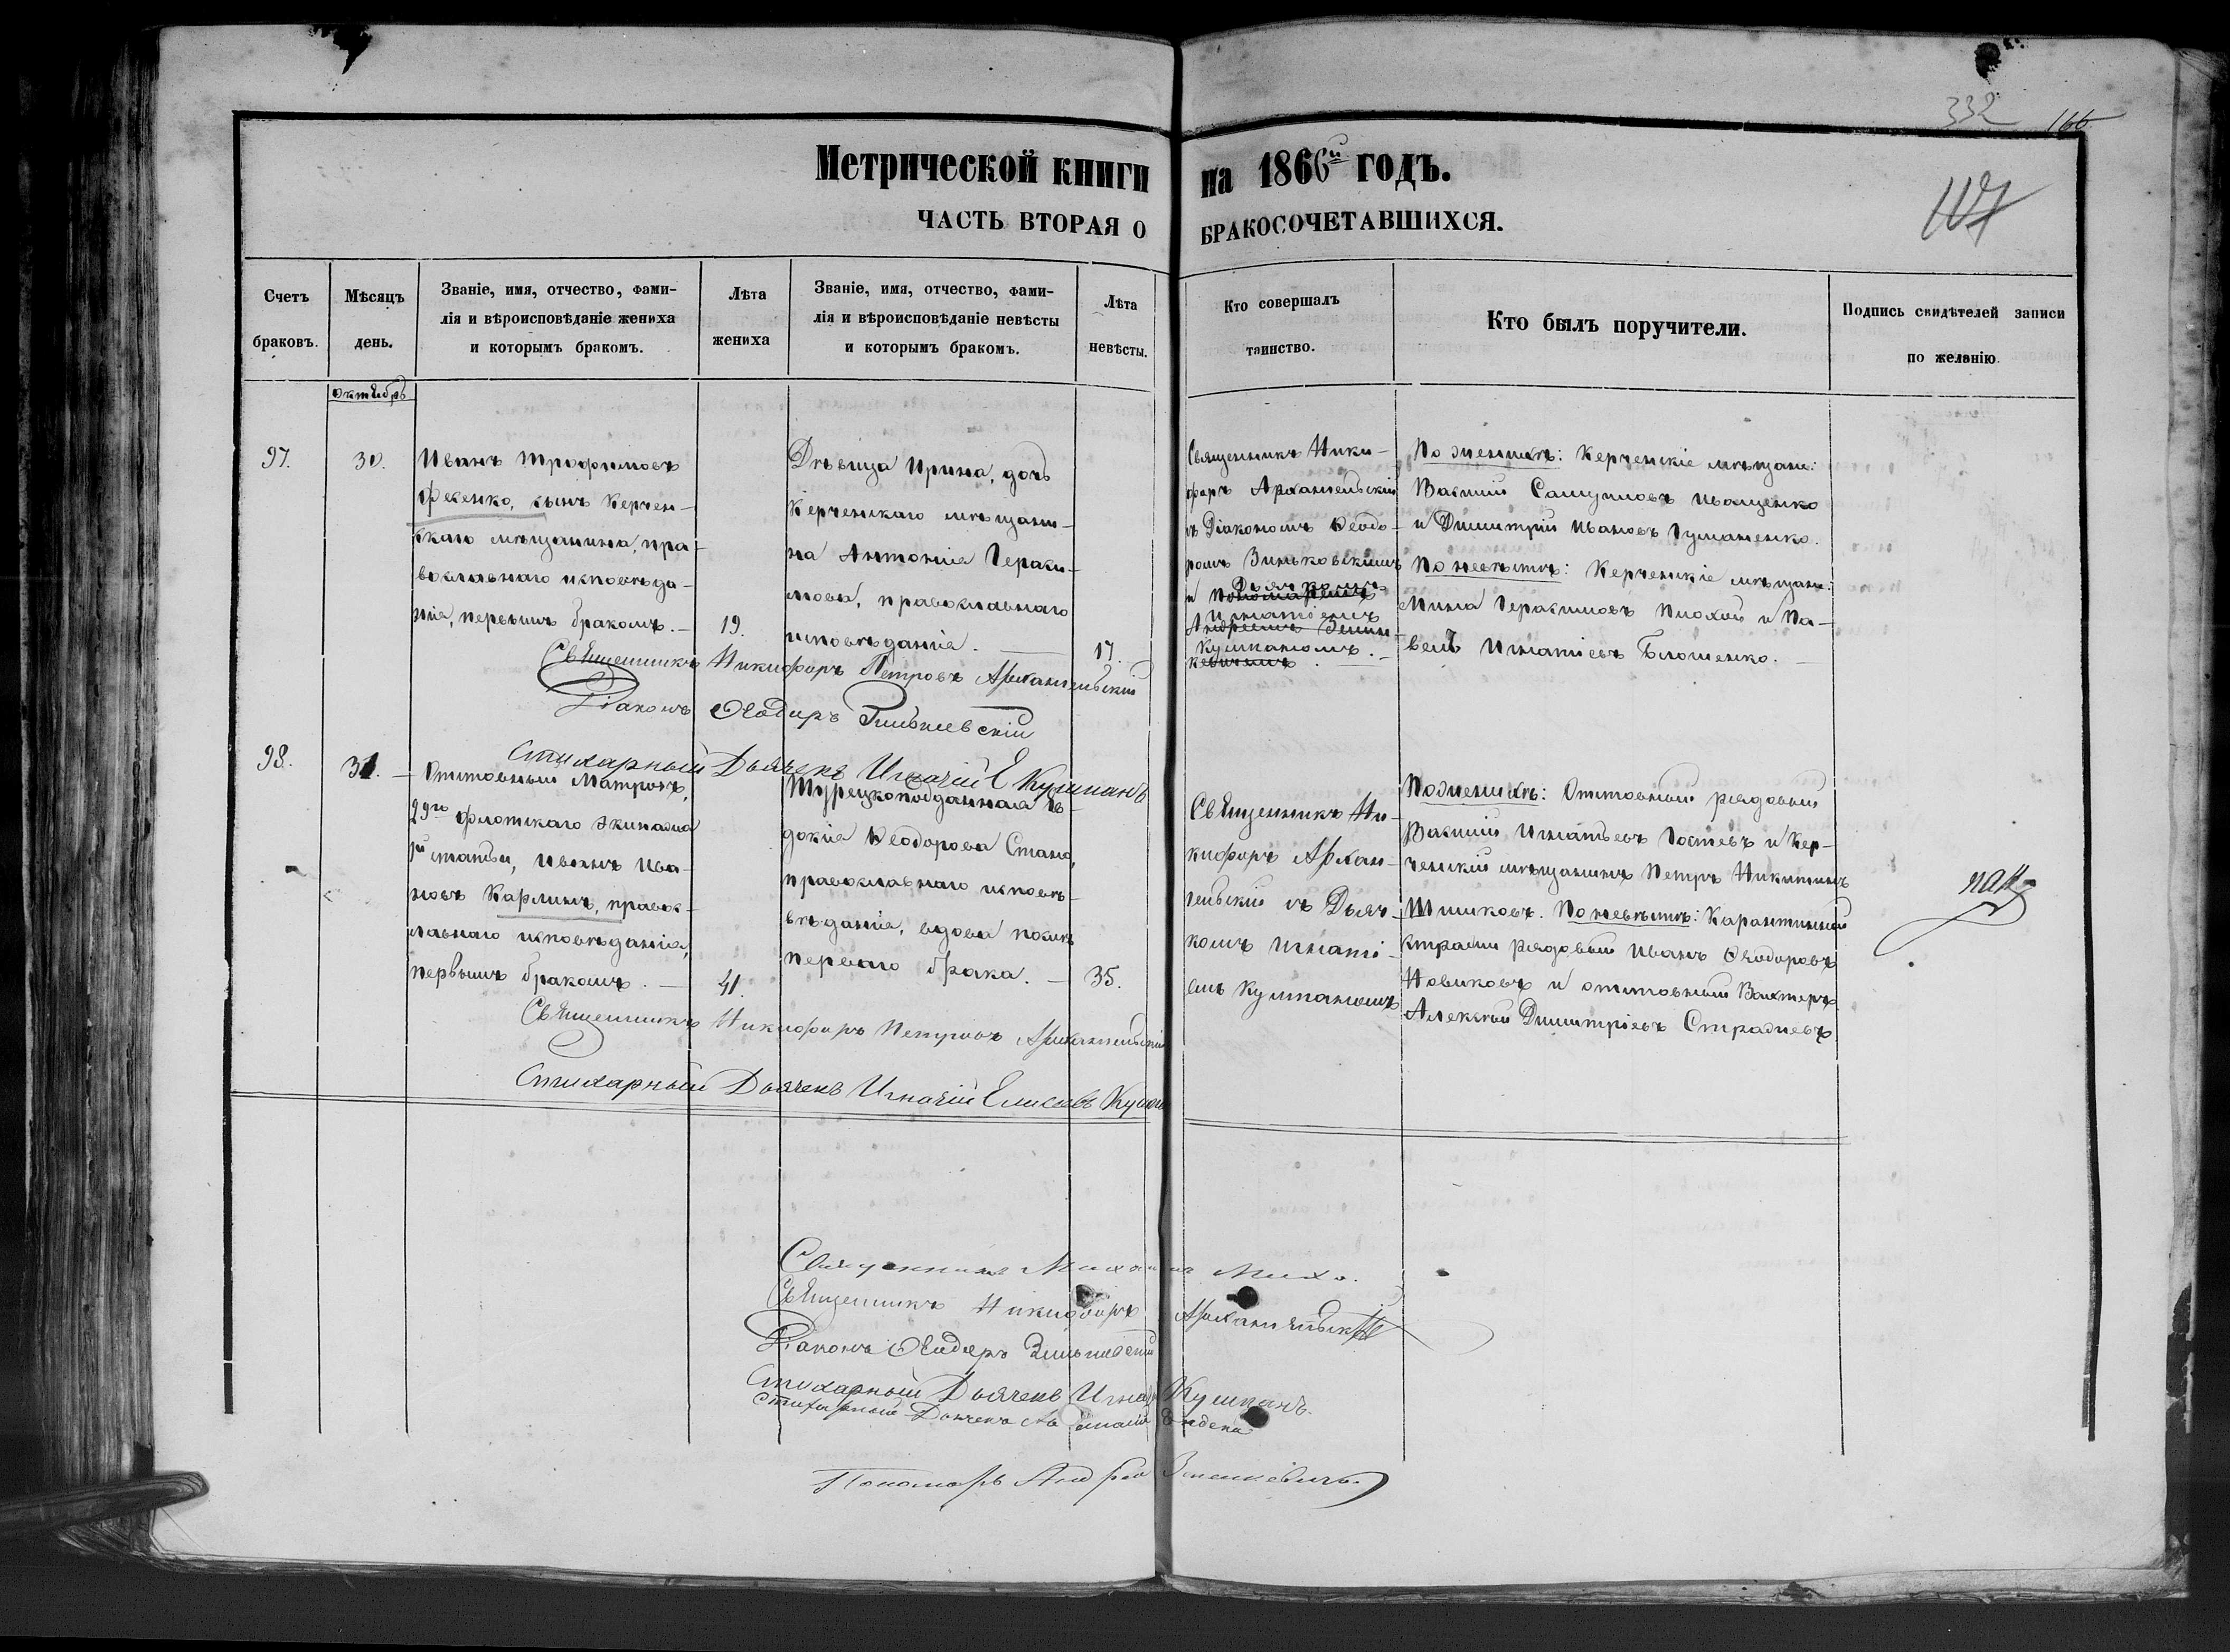 332 166.
Метрической книги на 1866й годъ.
107
ЧАСТЬ ВТОРАЯ О БРАКОСОЧЕТАВШИХСЯ.
Счетъ
браковъ.
Мѣсяцъ
день.
Званіе, имя, отчество, фами-
лія и вѣроисповѣданіе жениха
и которымъ бракомъ.
Лѣта
жениха
Званіе, имя, отчество, фами-
лія и вѣроисповѣданіе невѣсты
и которымъ бракомъ.
Лѣта
невѣсты.
Кто совершалъ
таинство.
Кто былъ поручители.
Подпись свидѣтелей записи
по желанію.
Октябрь
97.
30.
Иванъ Трофимовъ
Фесенко, сынъ Керчен-
скаго мѣщанина, пра-
вославнаго исповѣда-
нія, первымъ бракомъ. —
19.
Дѣвица Ирина, дочь
Керченскаго мѣщани-
на Антонія Гераси-
мова, православнаго
исповѣданія. —
17.
Священникъ Ники-
форъ Архангельскій
съ Діакономъ Ѳеодо-
ромъ Зиньковскимъ
и Дьячкомъ
Игнатіемъ
Кушманомъ. —
По женихѣ: Керченскіе мѣщане:
Василій Самуиловъ Иващенко
и Димитрій Ивановъ Гуманенко.
По невѣстѣ: Керченскіе мѣщане:
Мина Герасимовъ Плохой и Па-
велъ Игнатіевъ Блошенко. —
Священникъ Никифоръ Петровъ Архангельскій
Діаконъ Ѳеодоръ Зиньковскій
Стихарный Дьячекъ Игнатій Е Кушманъ
98.
31. —
Отставный Матрозъ,
29го флотскаго экипажа
1й статьи, Иванъ Ива-
новъ Карлинъ, правос-
лавнаго исповѣданія,
первымъ бракомъ. —
41.
Турецкоподданная Ев-
докія Ѳеодорова Стано,
православнаго исповѣ-
вѣданія, вдова послѣ
перваго брака. —
35.
Священникъ Ни-
кифоръ Архан-
гельскій съ Дьяч-
комъ Игнаті-
емъ Кушманомъ
По женихѣ: Отставный рядовый
Василій Игнатьевъ Гостевъ и Кер-
ченскій мѣщанинъ Петръ Никитинъ
Шишковъ. По невѣстѣ: Карантинной
стражи рядовый Иванъ Ѳеодоровъ
Новиковъ и отставный Вахтеръ
Алексѣй Димитріевъ Стражевъ
Священникъ Никифоръ Петровъ Архангельскій
Стихарный Дьячекъ Игнатій Елисѣевъ Кушм
Священникъ
Священникъ Никифоръ Архангельскій
Діаконъ Ѳеодоръ Зиньковскій
Стихарный Дьячекъ Игнат Кушманъ.
Стихарный Дьячекъ
Пономарь Андрей Зинкевичъ